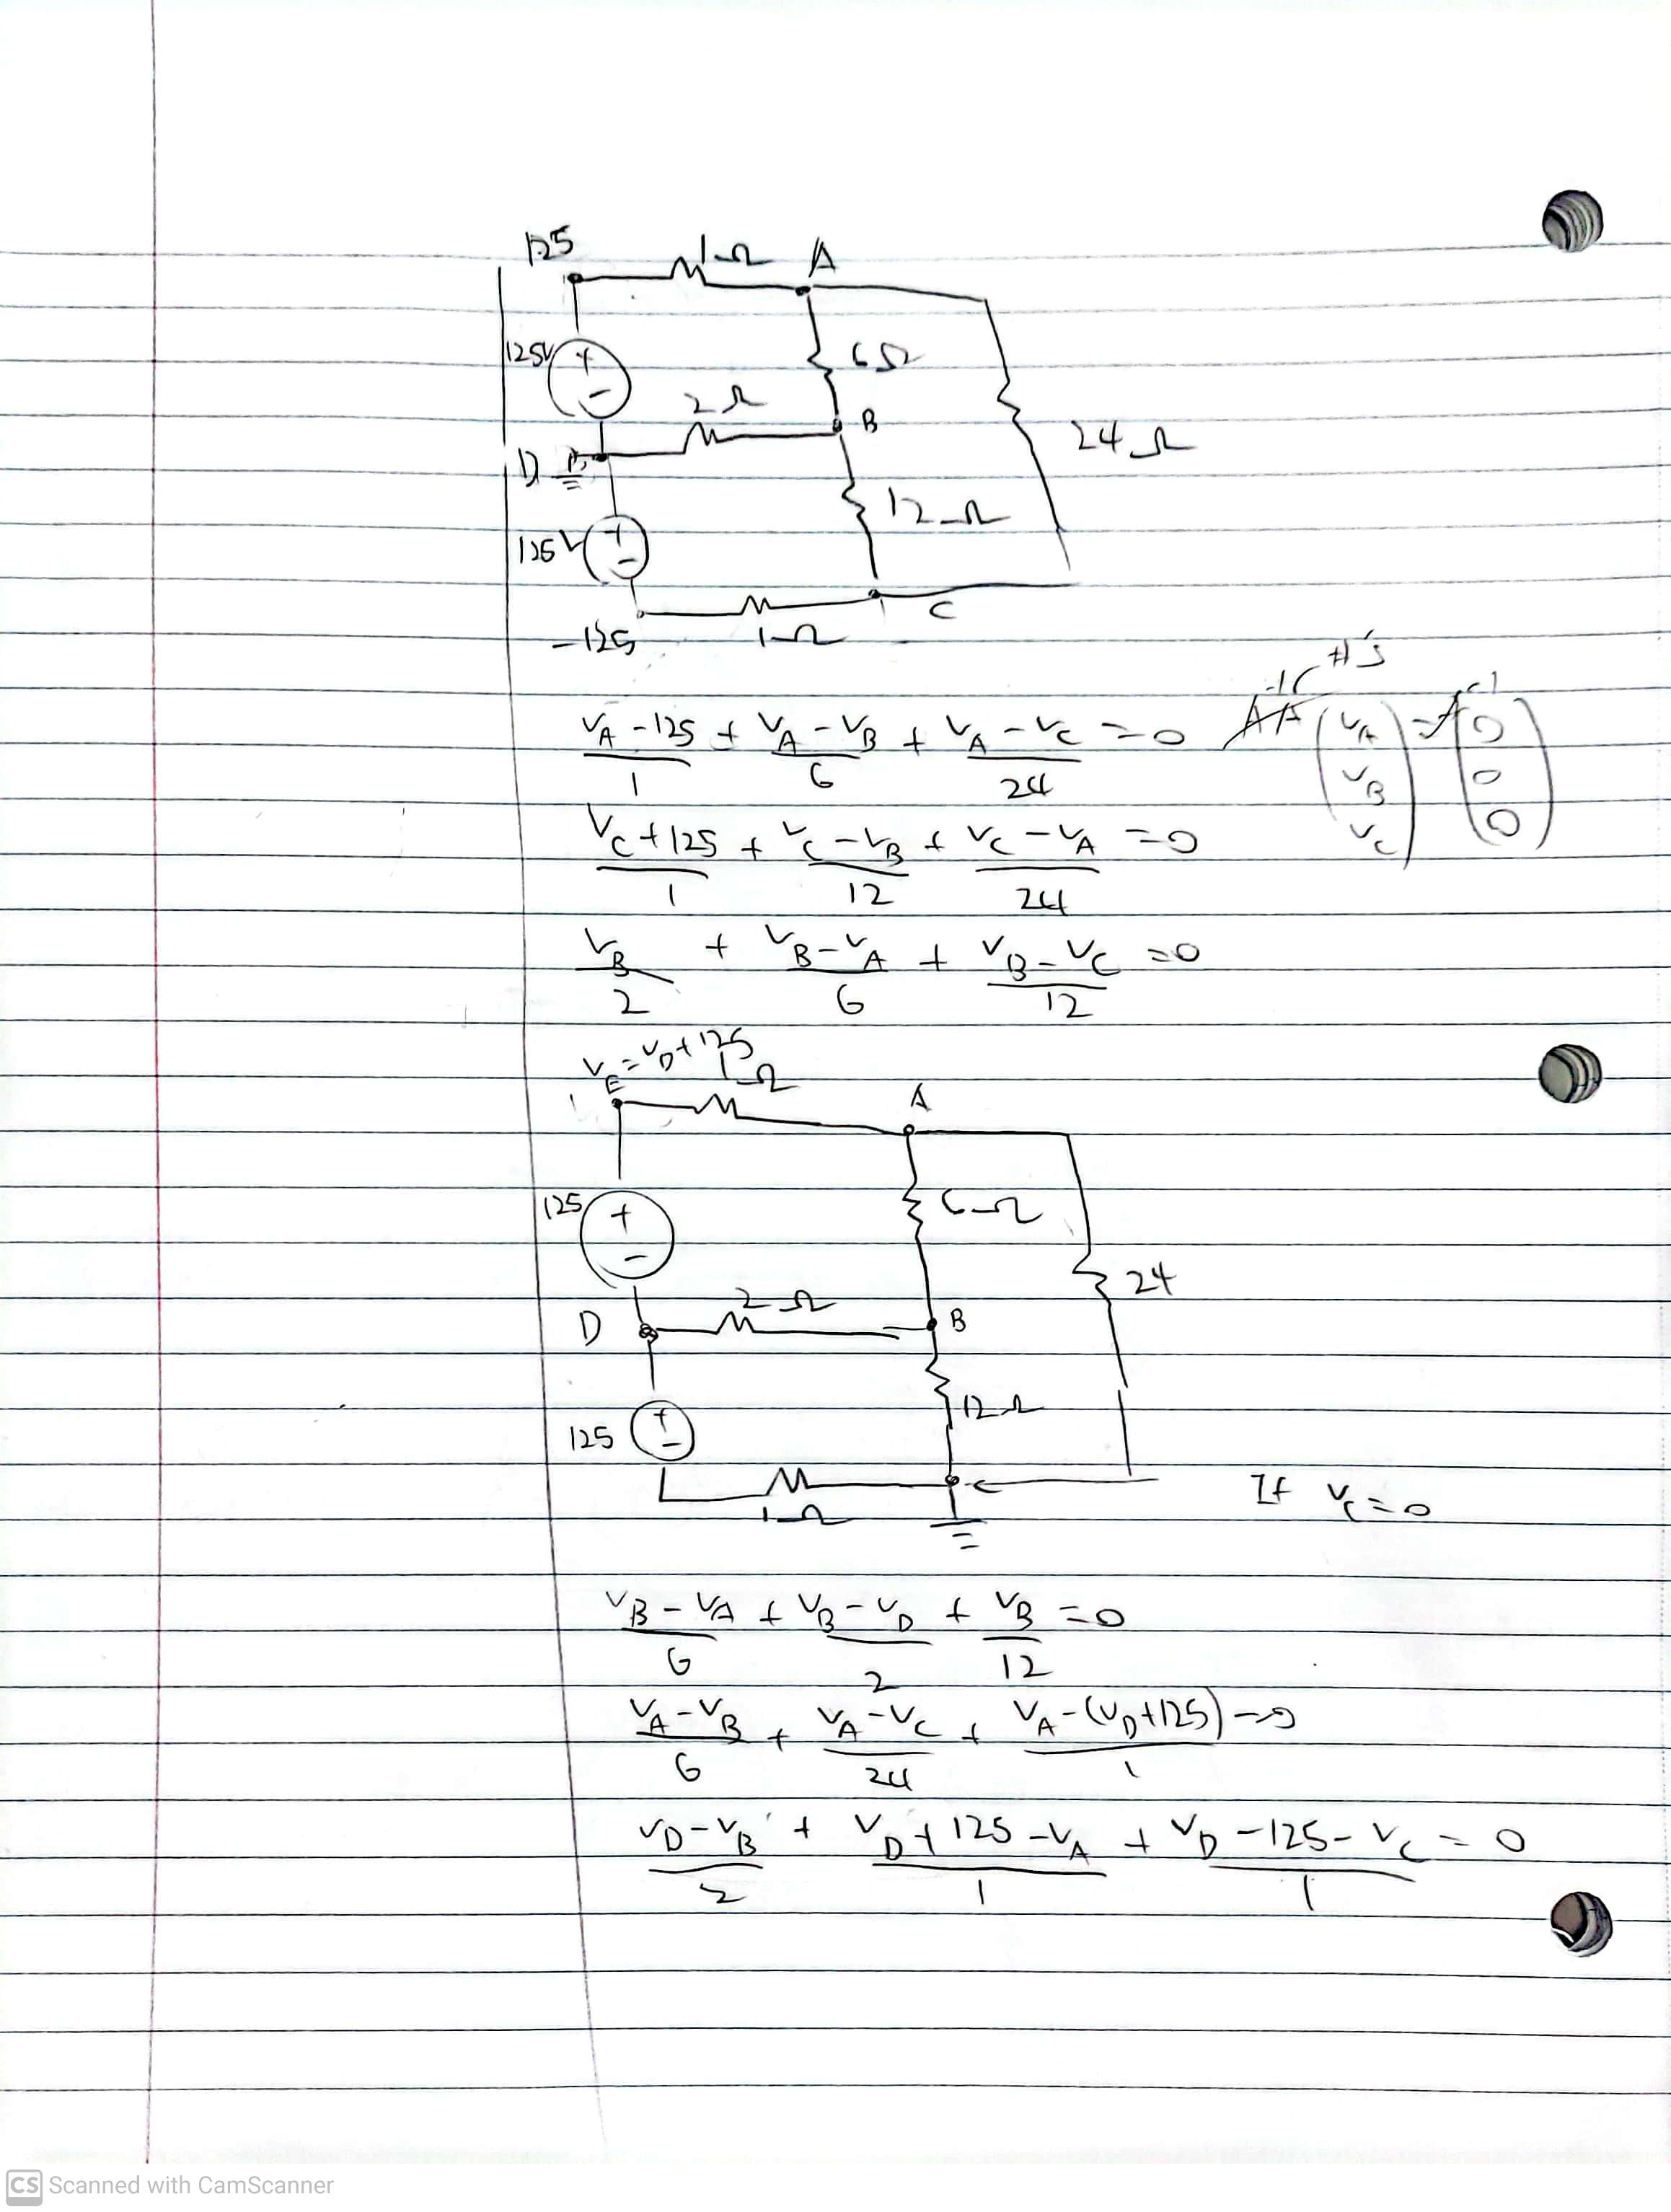 125 1Ω A
125V + - 6Ω
2Ω B
24Ω
D
12Ω
125V + -
C
-125 1Ω
#'s
(V_A - 125)/1 + (V_A - V_B)/6 + (V_A - V_C)/24 = 0
(V_A V_B V_C) = (0 0 0)
(V_C + 125)/1 + (V_C - V_B)/12 + (V_C - V_A)/24 = 0
V_B/2 + (V_B - V_A)/6 + (V_B - V_C)/12 = 0
V_E = V_D + 125
1Ω A
125 + - 6Ω
24
2Ω
D B
12Ω
125 + -
1Ω C
If V_C = 0
(V_B - V_A)/6 + (V_B - V_D)/2 + V_B/12 = 0
(V_A - V_B)/6 + (V_A - V_C)/24 + (V_A - (V_D + 125))/1 = 0
(V_D - V_B)/2 + (V_D + 125 - V_A)/1 + (V_D - 125 - V_C)/1 = 0
CS Scanned with CamScanner